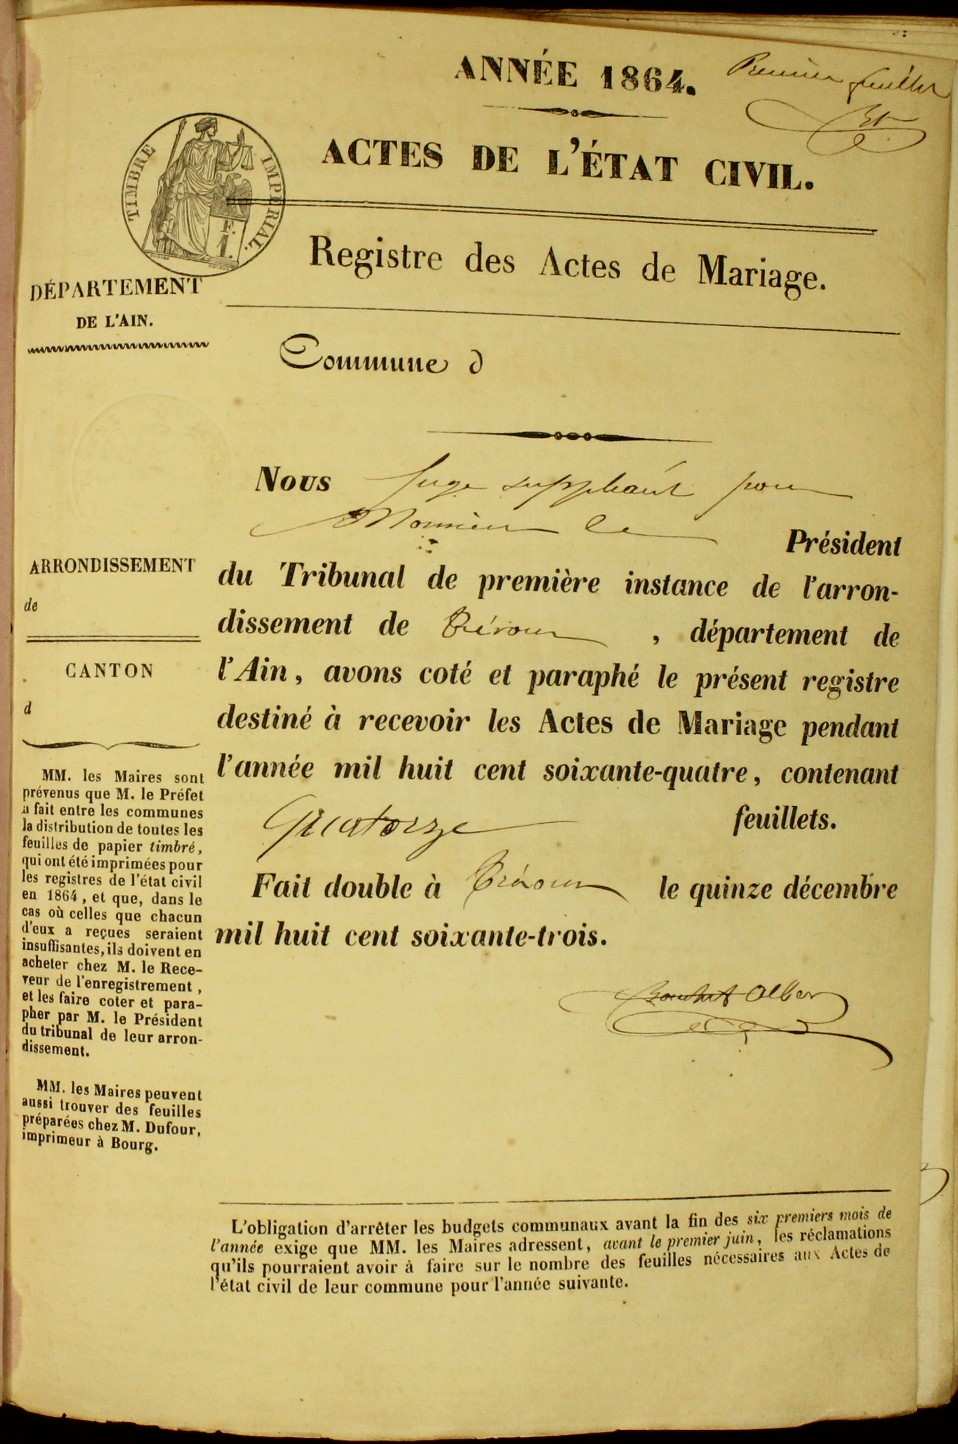 ANNÉE 1864.
Premier feuillet
ACTES DE L'ÉTAT CIVIL.
TIMBRE IMPÉRIAL.
1 F.
Registre des Actes de Mariage.
DÉPARTEMENT
DE L'AIN.
Commune d
Nous Juge suppléant pour
Monsieur le
Président
du Tribunal de première instance de l'arron-
dissement de Trévoux, département de
l'Ain, avons coté et paraphé le présent registre
destiné à recevoir les Actes de Mariage pendant
l'année mil huit cent soixante-quatre, contenant
Quatorze feuillets.
Fait double à Trévoux le quinze décembre
mil huit cent soixante-trois.
ARRONDISSEMENT
de
CANTON
d
MM. les Maires sont
prévenus que M. le Préfet
a fait entre les communes
la distribution de toutes les
feuilles de papier timbré,
qui ont été imprimées pour
les registres de l'état civil
en 1864, et que, dans le
cas où celles que chacun
d'eux a reçues seraient
insuffisantes, ils doivent en
acheter chez M. le Rece-
veur de l'enregistrement,
et les faire coter et para-
pher par M. le Président
du tribunal de leur arron-
dissement.
MM. les Maires peuvent
aussi trouver des feuilles
préparées chez M. Dufour,
imprimeur à Bourg.
L'obligation d'arrêter les budgets communaux avant la fin des six premiers mois de
l'année exige que MM. les Maires adressent, avant le premier juin, les réclamations
qu'ils pourraient avoir à faire sur le nombre des feuilles nécessaires aux Actes de
l'état civil de leur commune pour l'année suivante.